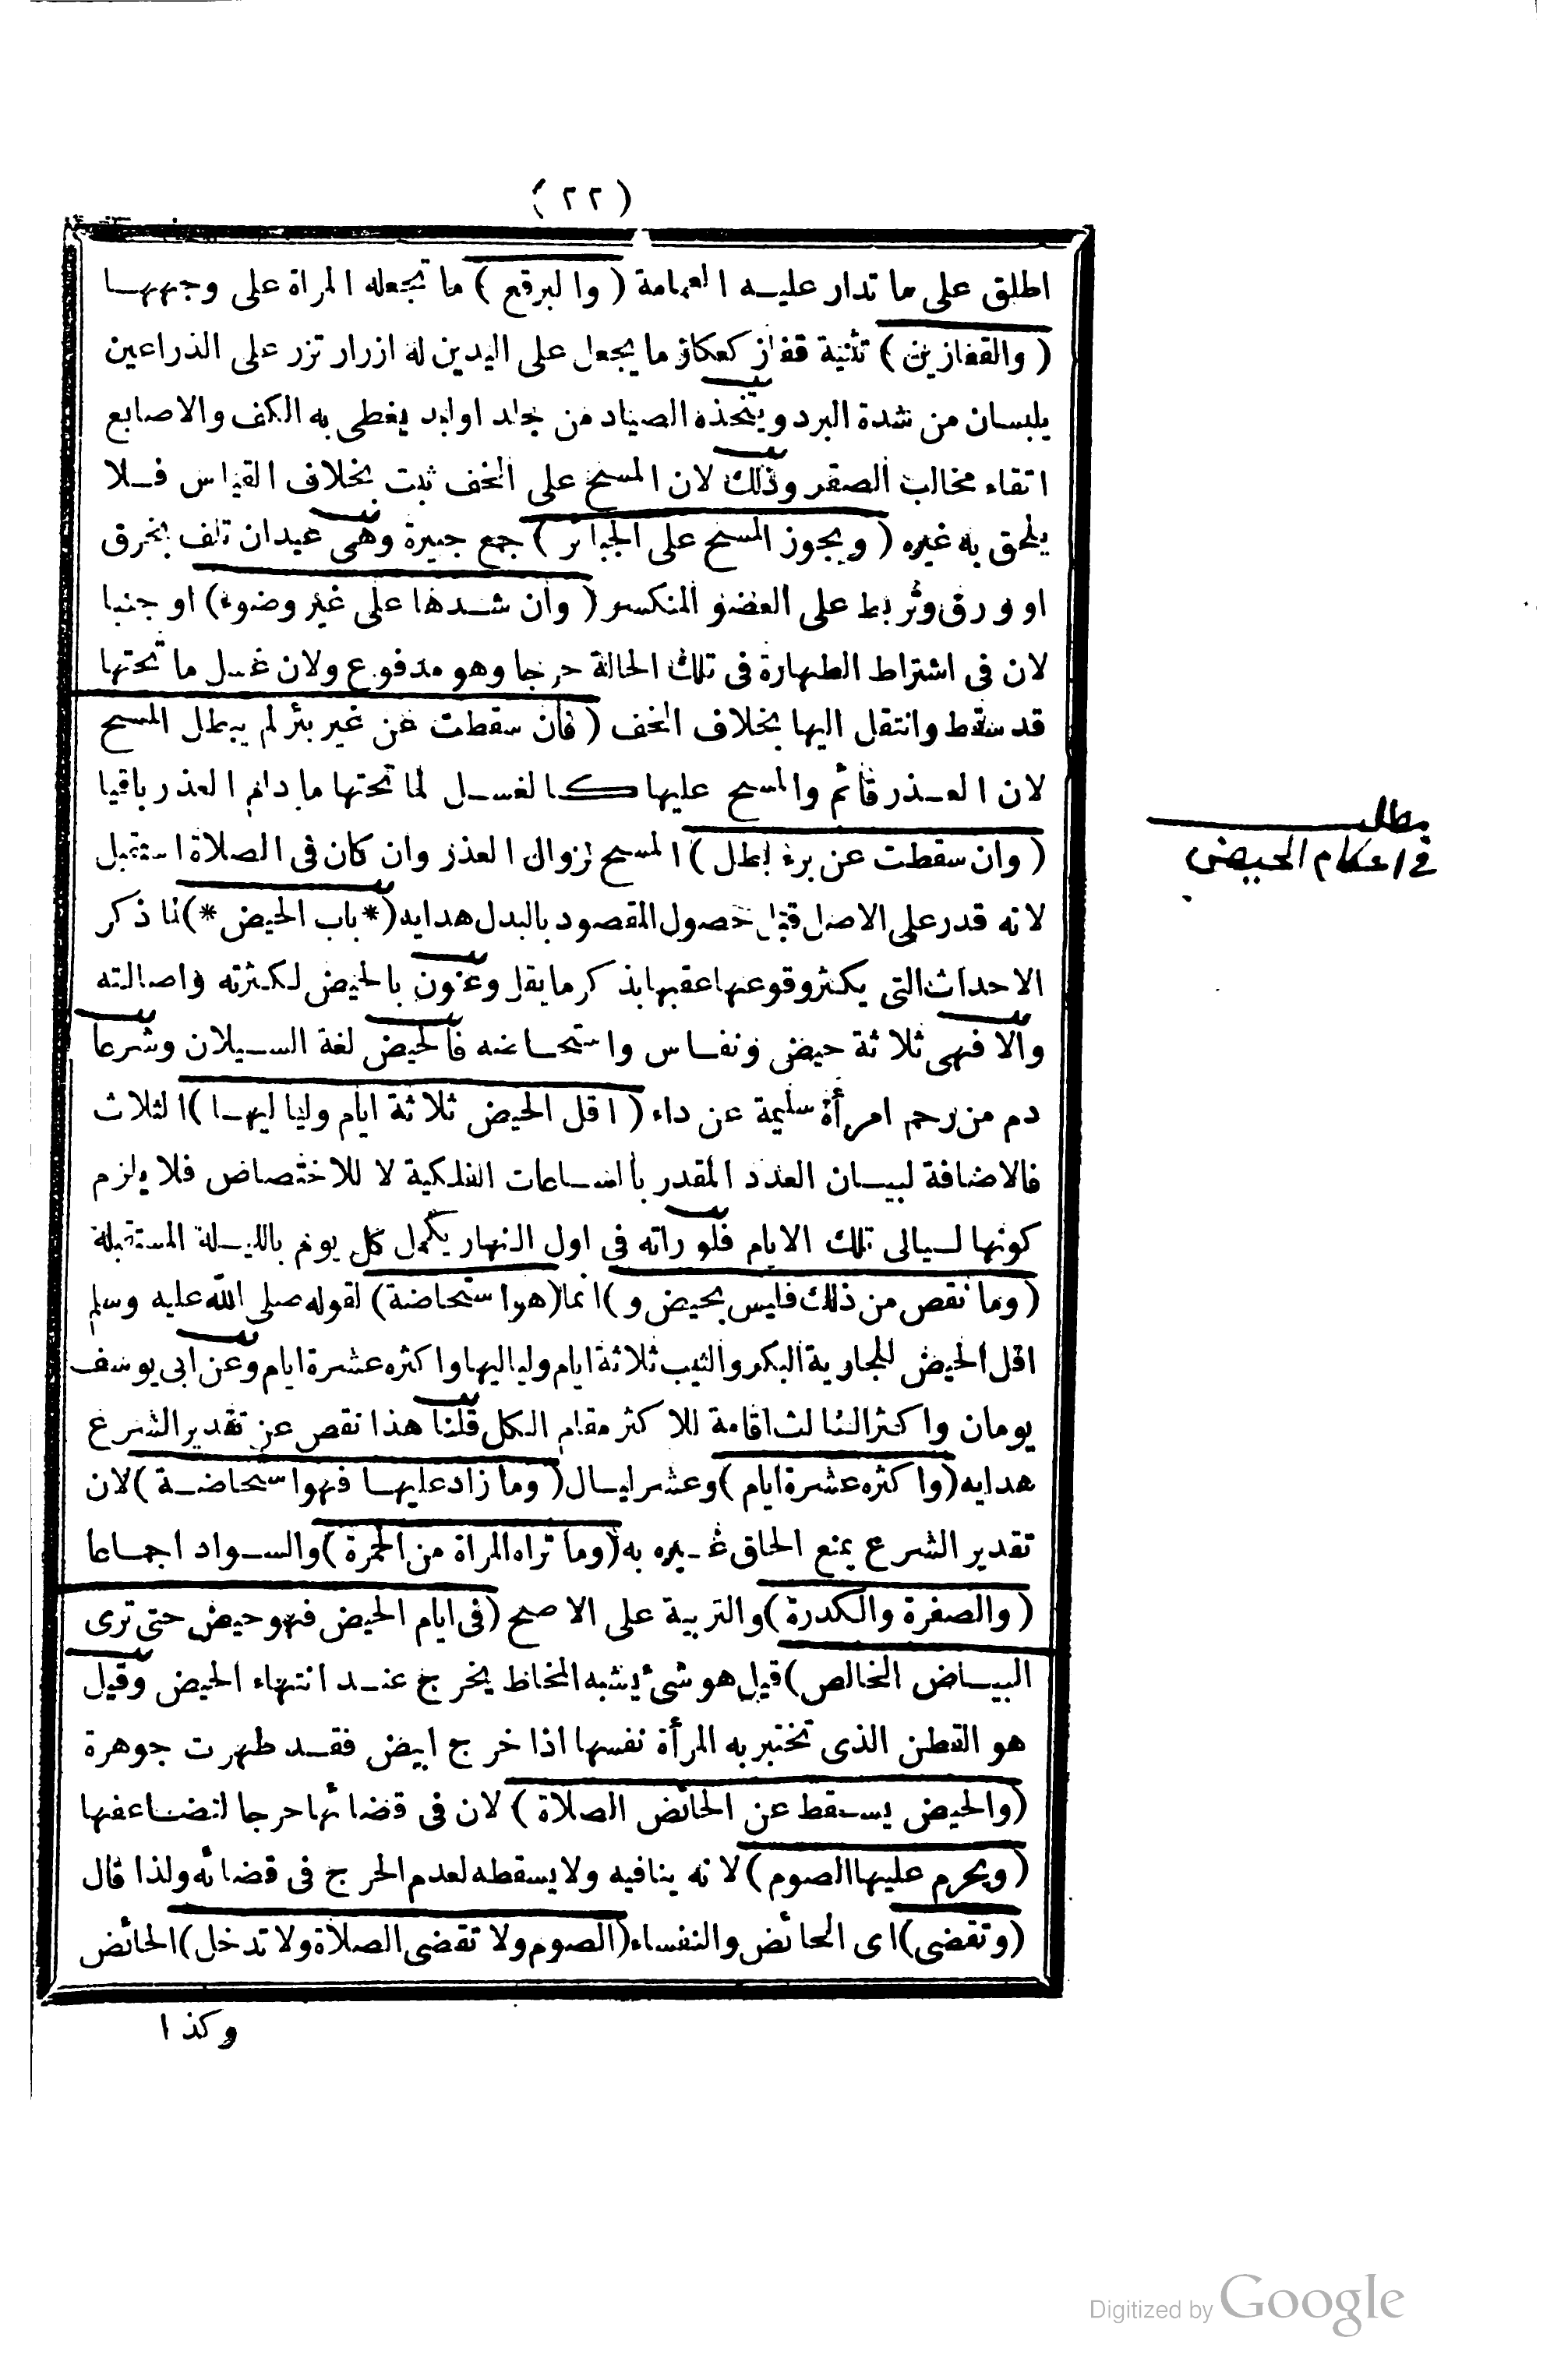 (٢٢)
اطلق على ما تدار عليه العمامة (والبرقع) ما تجعله المراة على وجهها
(والقفازين) تثنية قفاز كعكاز ما يجعل على اليدين له ازرار تزر على الذراعين
يلبسان من شدة البرد ويتخذه الصياد من جلد او لبد يغطى به الكف والاصابع
اتقاء مخالب الصقر وذلك لان المسح على الخف ثبت بخلاف القياس فلا
يلحق به غيره (ويجوز المسح على الجبائر) جمع جبيرة وهى عيدان تلف بخرق
او ورق وتربط على العضو المنكسر (وان شدها على غير وضوء) او جنبا
لان فى اشتراط الطهارة فى تلك الحالة حرجا وهو مدفوع ولان غسل ما تحتها
قد سقط وانتقل اليها بخلاف الخف (فان سقطت عن غير بئر لم يبطل المسح
لان العذر قائم والمسح عليها كالغسل لما تحتها ما دام العذر باقيا
(وان سقطت عن برء بطل) المسح لزوال العذر وان كان فى الصلاة استقبل
لانه قدر على الاصل قبل حصول المقصود بالبدل هدايه (*باب الحيض*) لما ذكر
الاحداث التى يكثر وقوعها عقبها بذكر ما يقل وعنون بالحيض لكثرته واصالته
والا فهى ثلاثة حيض ونفاس واستحاضه فالحيض لغة السيلان وشرعا
دم من رحم امرأة سليمة عن داء (اقل الحيض ثلاثة ايام ولياليها) الثلاث
فالاضافة لبيان العدد المقدر بالساعات الفلكية لا للاختصاص فلا يلزم
كونها ليالى تلك الايام فلو راته فى اول النهار يكمل كل يوم بالليلة المستقبلة
(وما نقص من ذلك فليس بحيض و) انما (هو استحاضة) لقوله صلى الله عليه وسلم
اقل الحيض للجارية البكر والثيب ثلاثة ايام ولياليها واكثره عشرة ايام وعن ابى يوسف
يومان واكثر الثالث اقامة للاكثر مقام الكل قلنا هذا نقص عن تقدير الشرع
هدايه (واكثره عشرة ايام) وعشر ليال (وما زاد عليها فهو استحاضة) لان
تقدير الشرع يمنع الحاق غيره به (وما تراه المراة من الحمرة) والسواد اجماعا
(والصفرة والكدرة) والتربية على الاصح (فى ايام الحيض فهو حيض حتى ترى
البياض الخالص) قيل هو شئ يشبه المخاط يخرج عند انتهاء الحيض وقيل
هو القطن الذى تختبر به المرأة نفسها اذا خرج ابيض فقد طهرت جوهرة
(والحيض يسقط عن الحائض الصلاة) لان فى قضائها حرجا لتضاعفها
(ويحرم عليها الصوم) لانه ينافيه ولا يسقطه لعدم الحرج فى قضائه ولذا قال
(وتقضى) اى الحائض والنفساء (الصوم ولا تقضى الصلاة ولا تدخل) الحائض
وكذا
مطلب
فى احكام الحيض
Digitized by Google